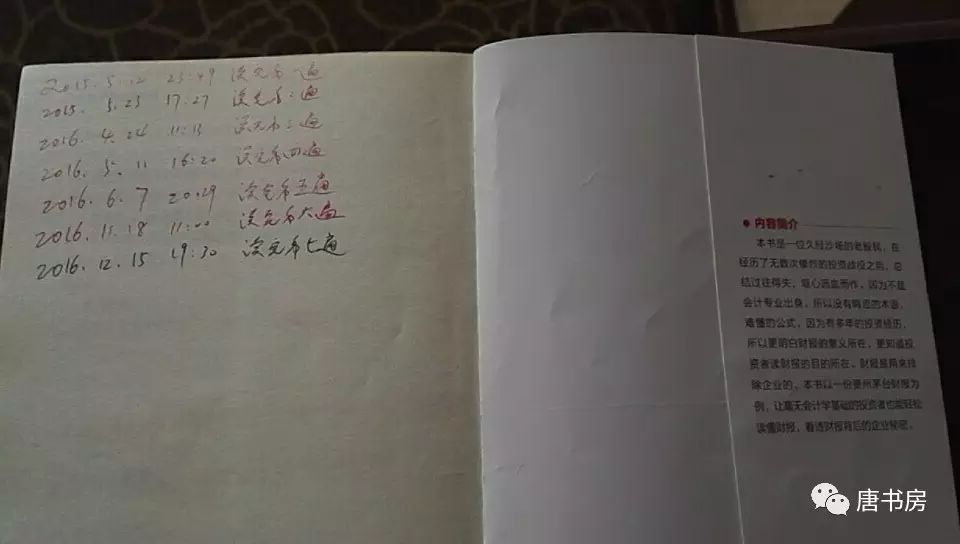 2015. 5. 12 23:49 读完第一遍
2015. 5. 23 17:27 读完第二遍
2016. 4. 24 11:13 读完第三遍
2016. 5. 11 16:20 读完第四遍
2016. 6. 7 20:29 读完第五遍
2016. 11. 18 11:00 读完第六遍
2016. 12. 15 19:30 读完第七遍
内容简介
本书是一位久经沙场的老股民，在
经历了无数次惨烈的投资战役之后，总
结过往得失，呕心沥血而作。因为不是
会计专业出身，所以没有晦涩的术语，
难懂的公式，因为有多年的投资经历，
所以更明白财报的意义所在，更知道投
资者读财报的目的所在。财报是用来排
除企业的，本书以一份贵州茅台财报为
例，让毫无会计学基础的投资者也能轻松
读懂财报，看透财报背后的企业秘密。
唐书房